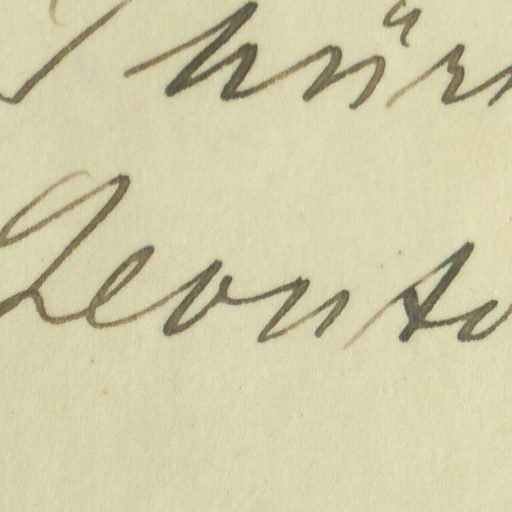 Thür
Leonto